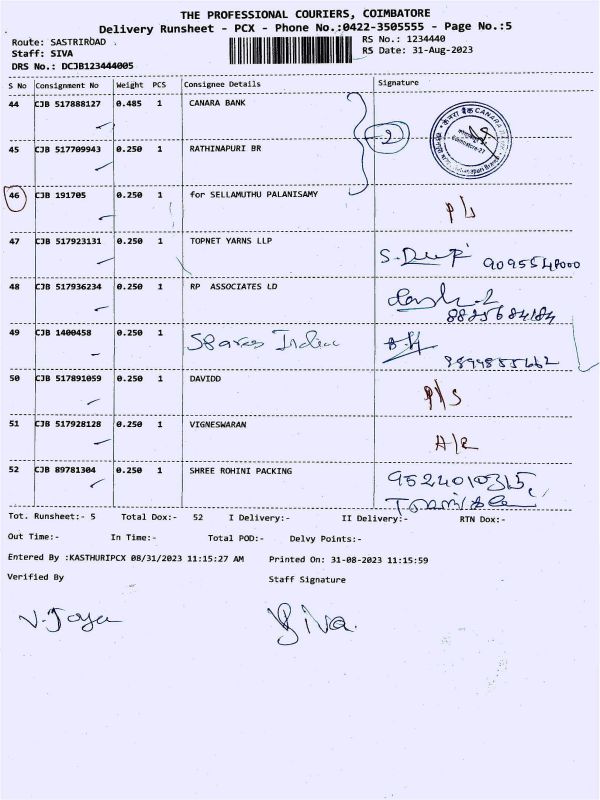 THE PROFESSIONAL COURIERS, COIMBATORE
Delivery Runsheet - PCX - Phone No.:0422-3505555 - Page No.:5
Route: SASTRIROAD
RS No.: 1234440
Staff: SIVA
RS Date: 31-Aug-2023
DRS No.: DCJB123444005
S No Consignment No Weight PCS Consignee Details Signature
44 CJB 517888127 0.485 1 CANARA BANK
2
45 CJB 517709943 0.250 1 RATHINAPURI BR
46 CJB 191705 0.250 1 for SELLAMUTHU PALANISAMY
47 CJB 517923131 0.250 1 TOPNET YARNS LLP
48 CJB 517936234 0.250 1 RP ASSOCIATES LD
49 CJB 1400458 0.250 1 Spares India
50 CJB 517891059 0.250 1 DAVIDD
51 CJB 517928128 0.250 1 VIGNESWARAN
52 CJB 89781304 0.250 1 SHREE ROHINI PACKING
Tot. Runsheet:- 5 Total Dox:- 52 I Delivery:- II Delivery:- RTN Dox:-
Out Time:- In Time:- Total POD:- Delvy Points:-
Entered By :KASTHURIPCX 08/31/2023 11:15:27 AM Printed On: 31-08-2023 11:15:59
Verified By Staff Signature
V. Jaya Siva